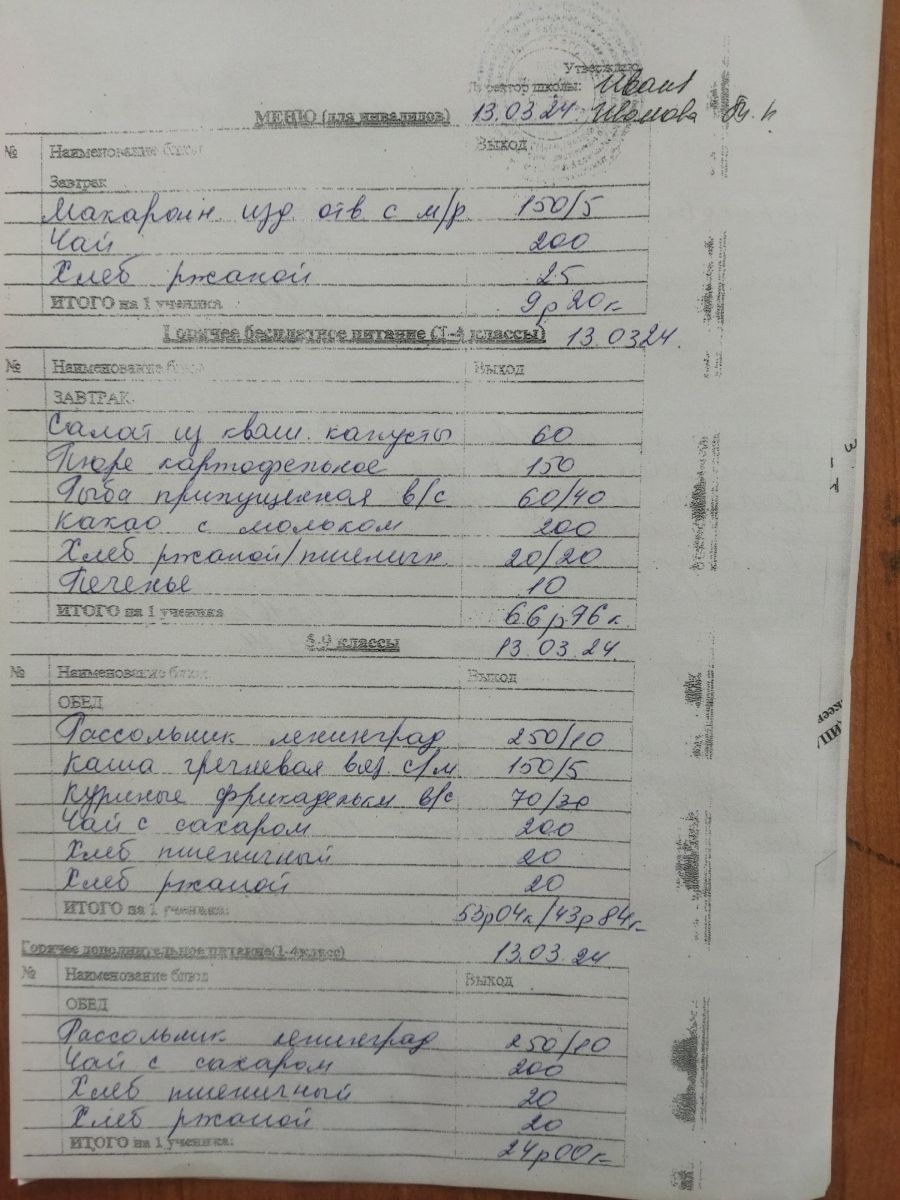 Утверждаю
Директор школы:
МЕНЮ (для инвалидов) 13.03.24 Иванова
№ Наименование блюд Выход
Завтрак
Макаронн. изд отв с м/р 150/5
Чай 200
Хлеб ржаной 25
ИТОГО на 1 ученика 9р20к
Горячее бесплатное питание (1-4 классы) 13.0324.
№ Наименование блюд Выход
ЗАВТРАК
Салат из кваш. капусты 60
Пюре картофельное 150
Рыба припущенная в/с 60/40
Какао с молоком 200
Хлеб ржаной/пшеничн. 20/20
Печенье 10
ИТОГО на 1 ученика 66р76к.
5-9 классы 13.03.24.
№ Наименование блюд Выход
ОБЕД
Рассольник ленинград 250/10
Каша гречневая вяз с/м 150/5
Куриные фрикадельки в/с 70/30
Чай с сахаром 200
Хлеб пшеничный 20
Хлеб ржаной 20
ИТОГО на 1 ученика: 53р04к/43р84к
Горячее дополнительное питание(1-4класс) 13.03.24
№ Наименование блюд Выход
ОБЕД
Рассольник ленинград 250/10
Чай с сахаром 200
Хлеб пшеничный 20
Хлеб ржаной 20
ИТОГО на 1 ученика: 24р00к